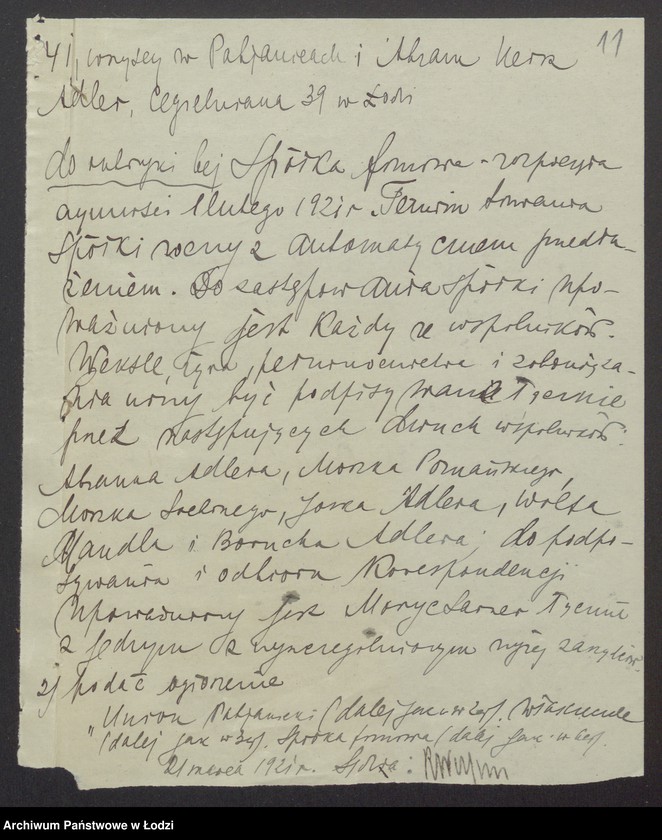 11
4 i, wszyscy w Pabjanicach i Abram Hersz
Adler, Cegielniana 39 w Łodzi
do rubryki 6ej Spółka firmowa - rozpoczyna
czynności 1 lutego 1921 r. Termin trwania
Spółki roczny z automatycznem przedłu-
żeniem. Do zastępowania Spółki upo-
ważniony jest każdy ze wspólników.
Weksle, żyra, pełnomocnictwa i zobowiąza-
nia winny być podpisywane łącznie
przez następujących dwuch wspólników:
Abrama Adlera, Moszka Poznańskiego,
Moszka, Joska Adlera, Wolfa
Mandla i Borucha Adlera; do podpi-
sywania i odbioru korespondencji
upoważniony jest Moryc Larner łącznie
z jednym z wyszczególnionym wyżej
2) podać ogłoszenie
"Union Pabjanicki (dalej jak w żąd. Właściciele
(dalej jak w żąd. Spółka firmowa (dalej jak w żąd.
21 marca 1921 r. Sędzia:
Archiwum Państwowe w Łodzi